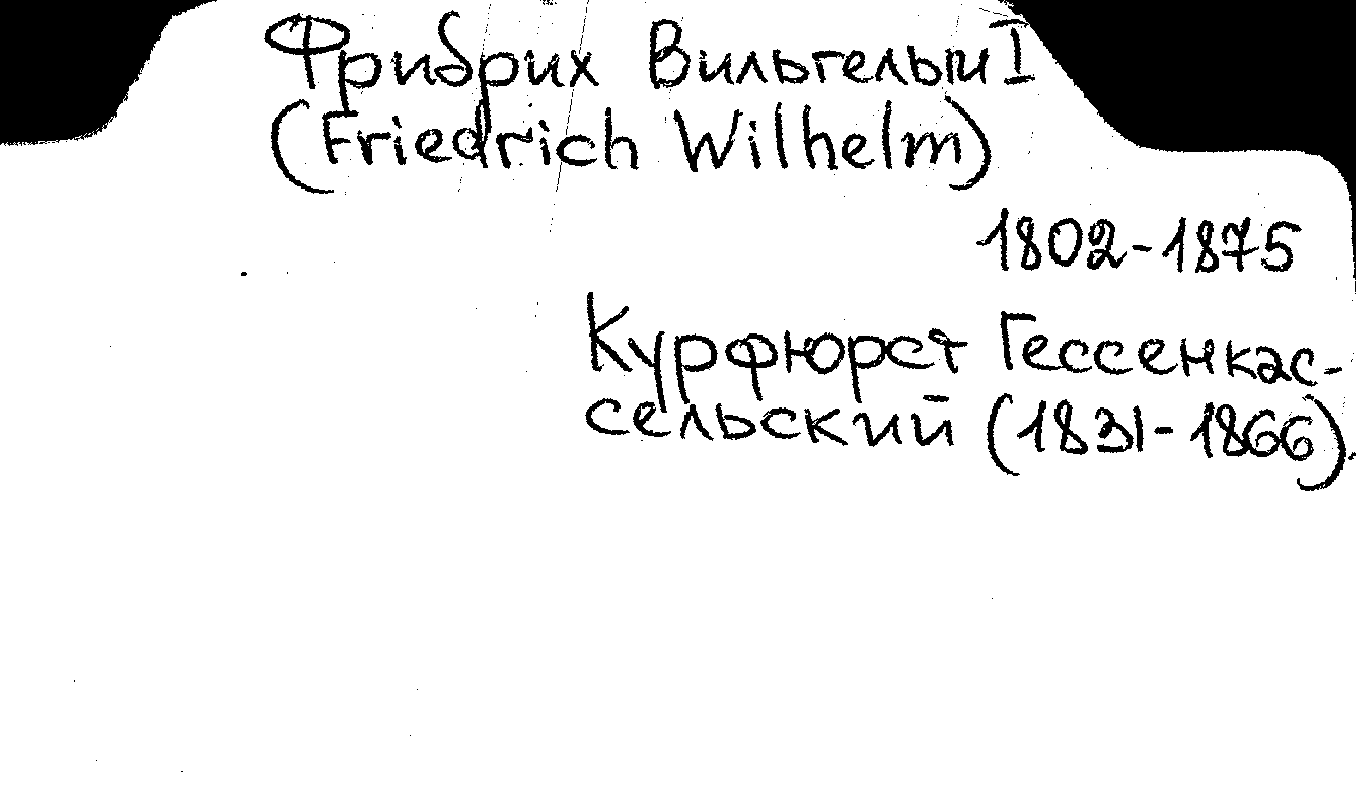 Фридрих Вильгельм I
(Friedrich Wilhelm)
1802-1875
Курфюрст Гессенкас-
сельский (1831-1866).